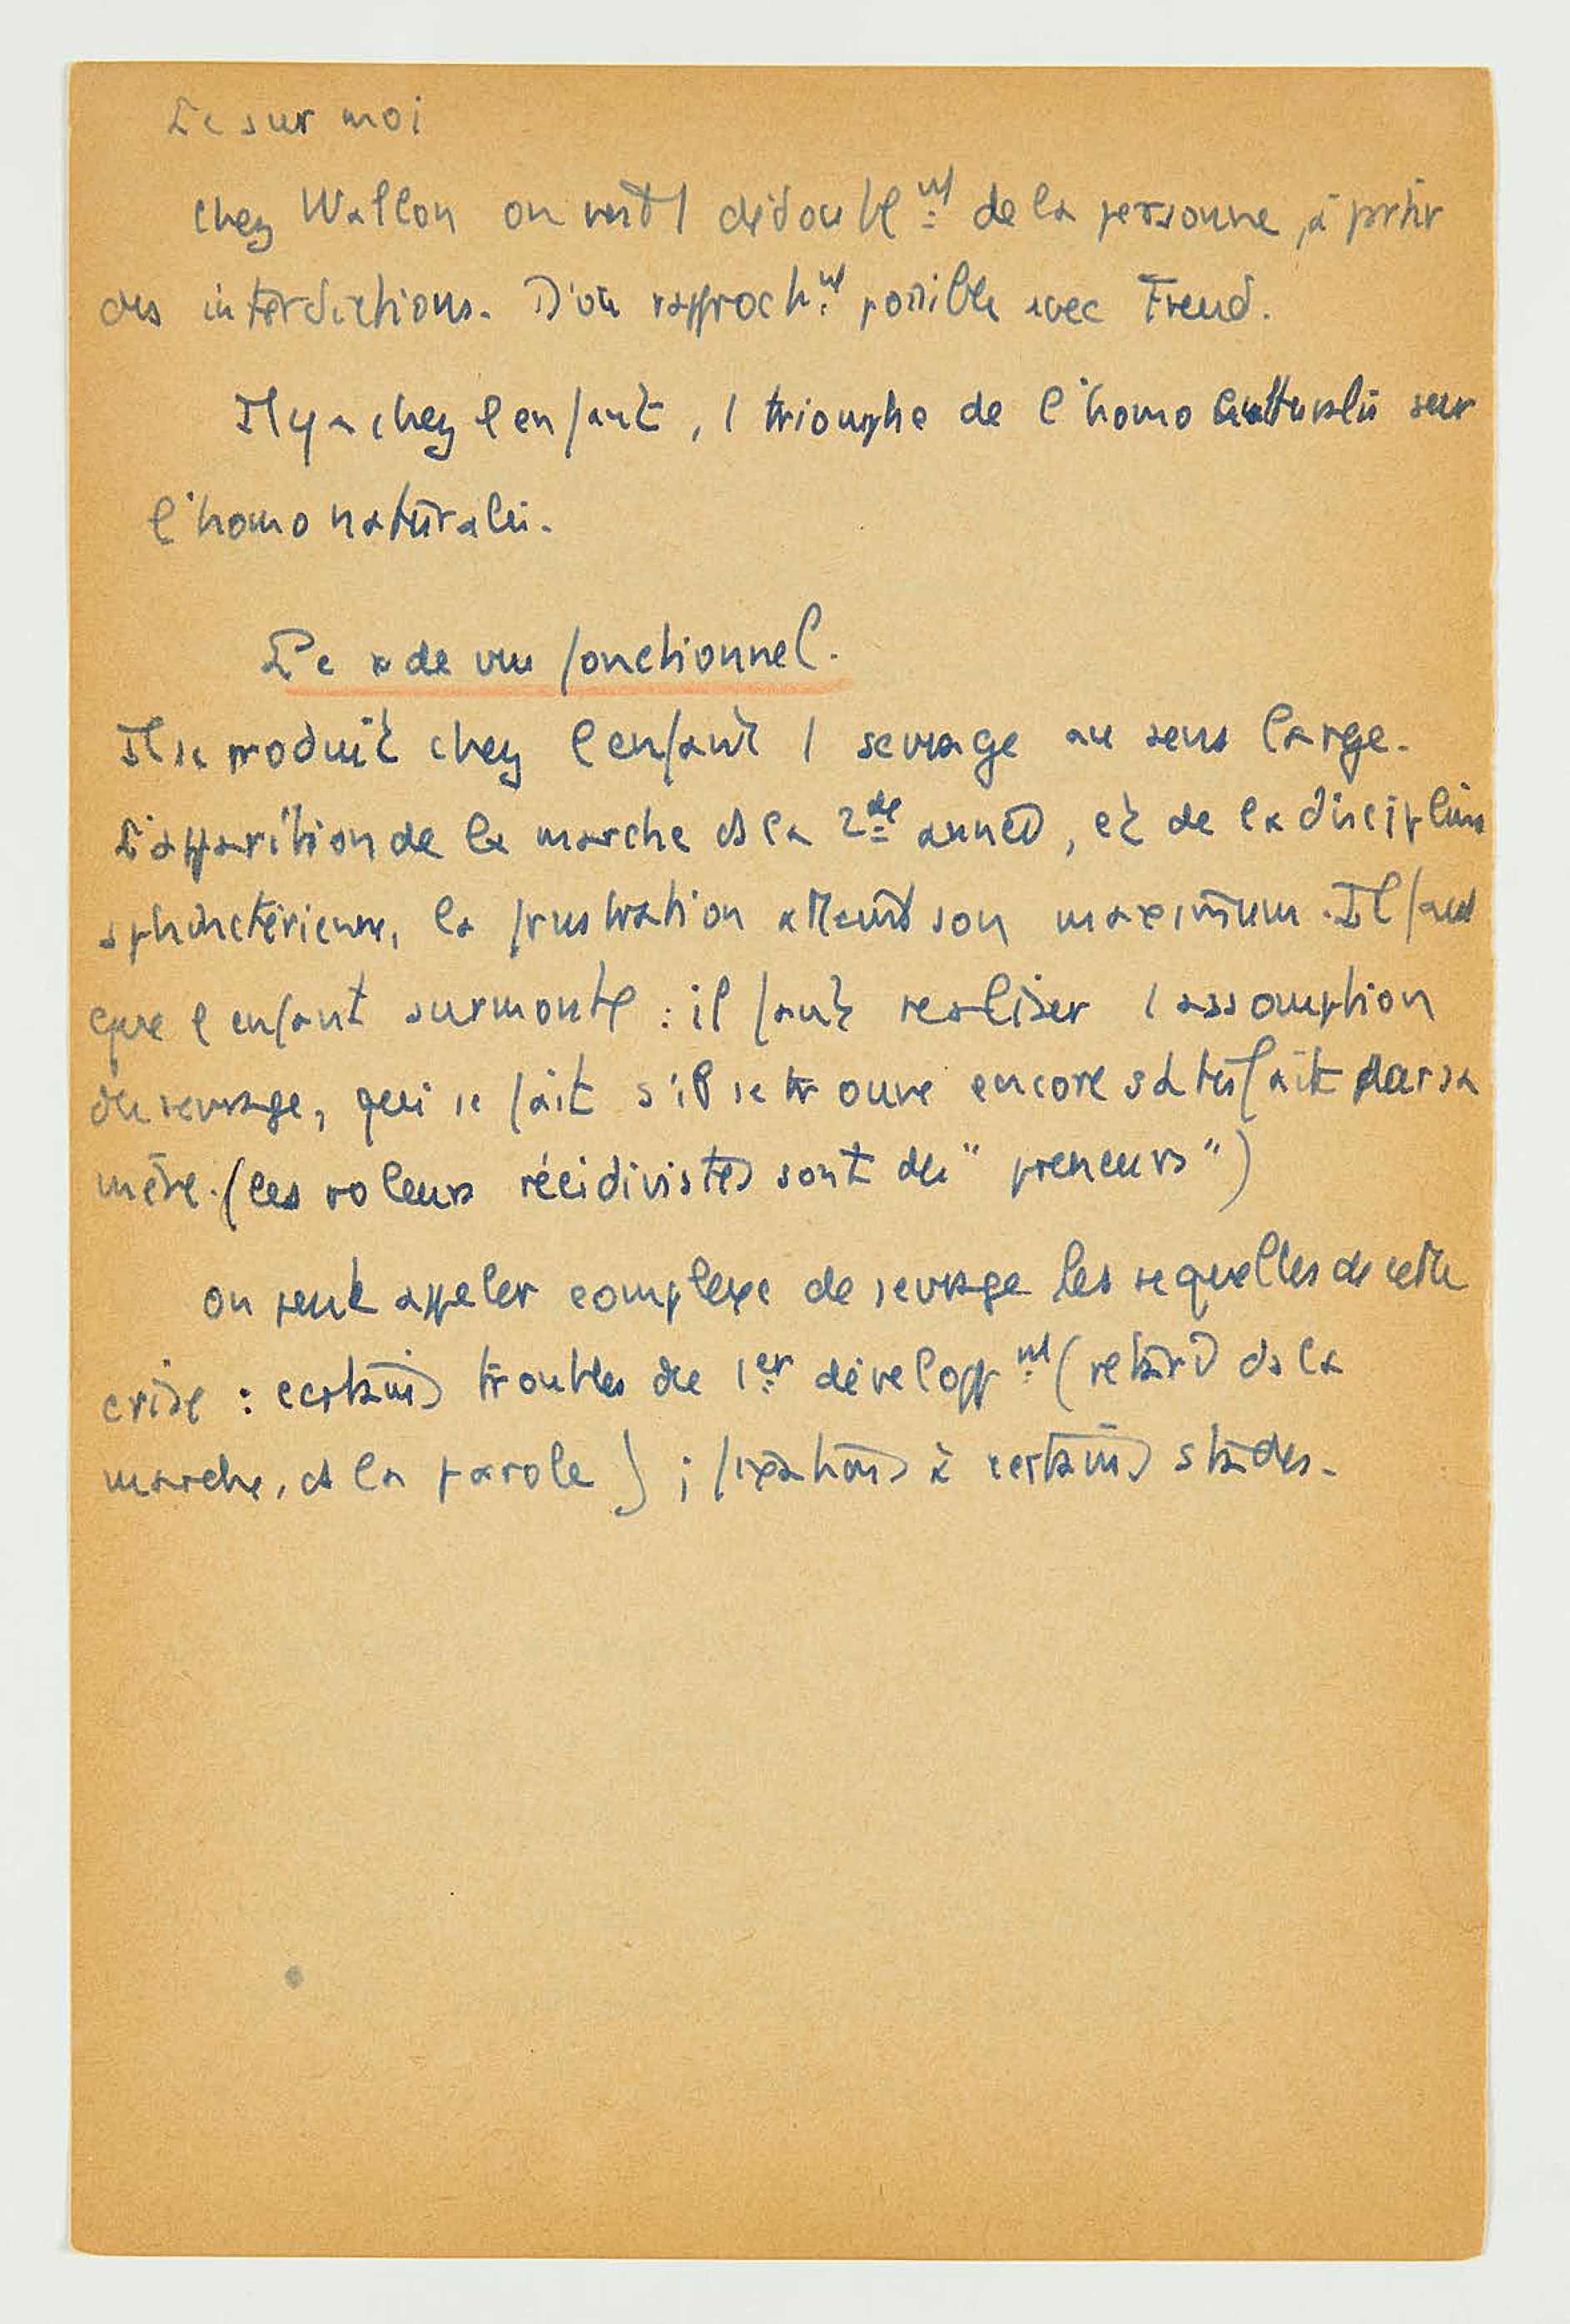 Le sur moi
chez Wallon on voit 1 dédoublmt de la personne, à partir
des interdictions. D'où rapprochmt possible avec Freud.
Il y a chez l'enfant, 1 triomphe de l'homo culturalis sur
l'homo naturalis.
Le de vue fonctionnel.
Il se produit chez l'enfant 1 sevrage au sens large.
L'apparition de la marche ds la 2de année, et de la discipline
sphinctérienne, la frustration atteint son maximum. Il faut
que l'enfant surmonte : il faut réaliser l'assomption
du sevrage, qui se fait s'il se trouve encore satisfait par sa
mère. (les voleurs récidivistes sont des "preneurs")
On peut appeler complexe de sevrage les sequelles de cette
crise : certains troubles du 1er developpmt (retard ds la
marche, ds la parole) ; fixations à certains stades.